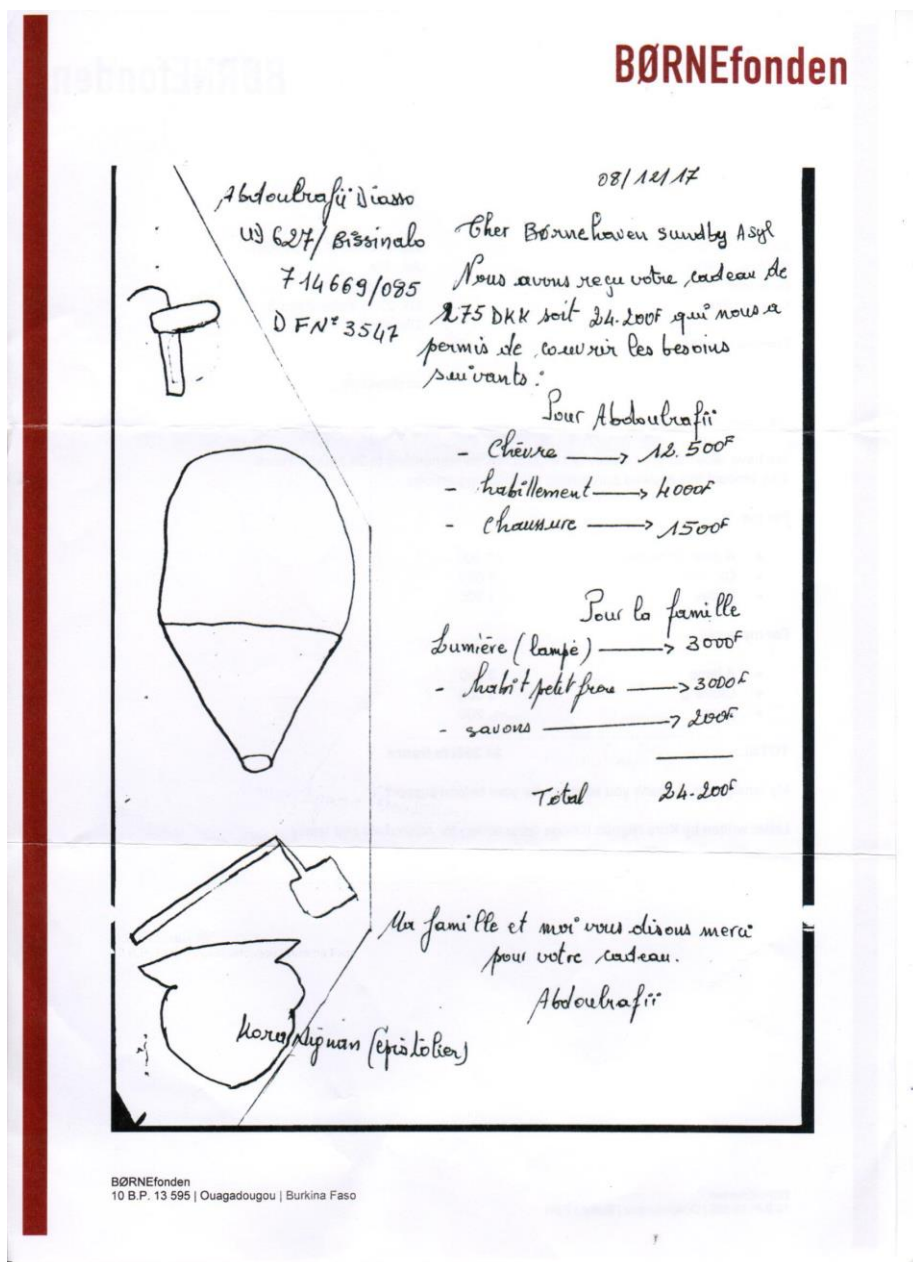 BØRNEfonden
08/12/17
Abdoulrafii Diasso
UD 627/ Bissinalo
714669/085
DFN° 3547
Cher Børnehaven sundby Asyl
Nous avons reçu votre cadeau de
275 DKK soit 24.200F qui nous a
permis de couvrir les besoins
suivants :
Pour Abdoulrafii
- Chèvre → 12.500F
- habillement → 4000F
- chaussure → 1500F
Pour la famille
Lumière (lampe) → 3000F
- habit petit frère → 3000F
- savons → 200F
Total 24.200F
Ma famille et moi vous disons merci
pour votre cadeau.
Abdoulrafii
Nignan (épistolier)
BØRNEfonden
10 B.P. 13 595 | Ouagadougou | Burkina Faso